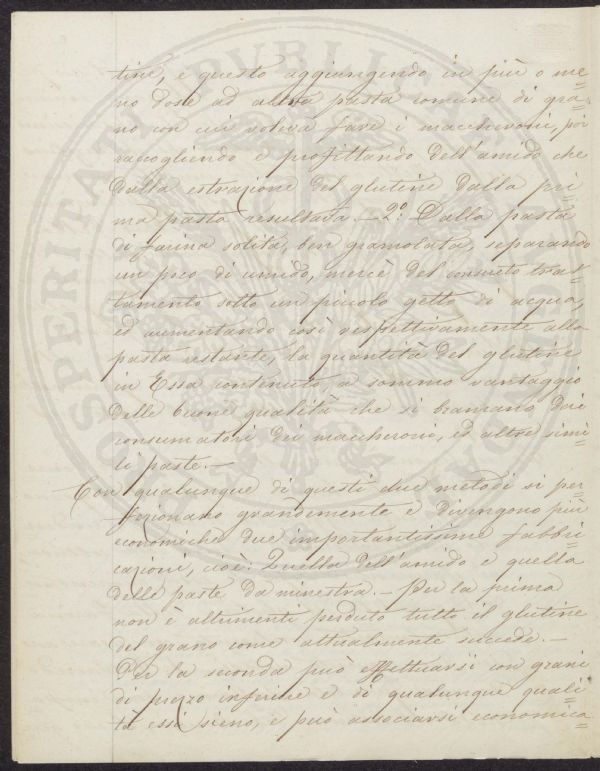 tine, e questo aggiungendo in più o me=
no dose ad altra pasta comune di gra=
no con cui voleva fare i maccheroni, poi
raccogliendo e profittando dell'amido che
dalla estrazione del glutine dalla pri=
ma pasta resultava. — 2.o Dalla pasta
di farina solita, ben gramolata, separando
un poco di amido, mercè del consueto trat=
tamento sotto un piccolo getto di acqua,
ed aumentando così respettivamente alla
pasta restante, la quantità del glutine
in Essa contenuto, a sommo vantaggio
delle buone qualità che si bramano dai
consumatori dei maccheroni, ed altre simi=
li paste. —
Con qualunque di questi due metodi si per=
fezionano grandemente e divengono più
economiche due importantissime fabbri=
cazioni, cioè: Quella dell'amido e quella
delle paste da minestra. — Per la prima
non è altrimenti perduto tutto il glutine
del grano come attualmente succede. —
Per la seconda può effettuarsi con grani
di prezzo inferiore e di qualunque quali=
tà essi sieno, e può associarsi economica=
PROSPERITATI PUBLICAE